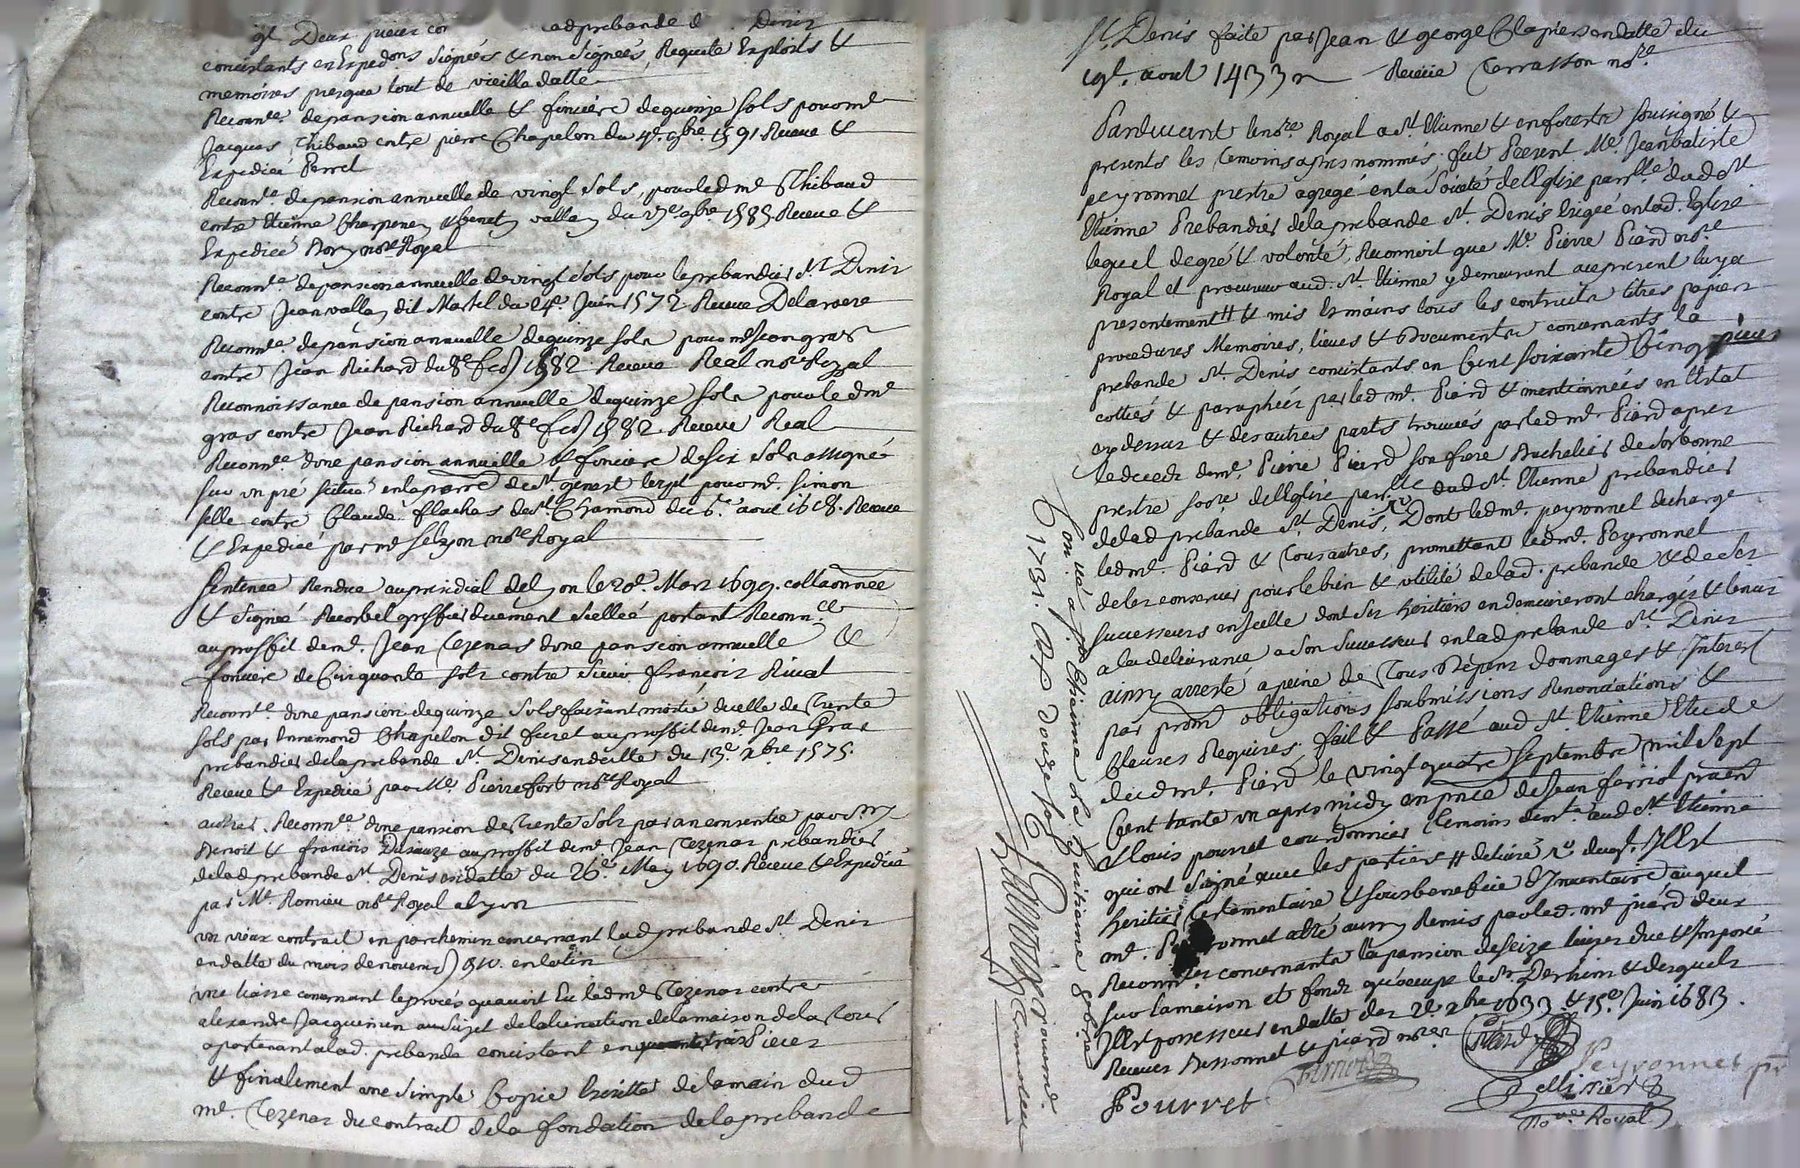 Deux pieces adprebande Denis
concistants en Expedons Signées & non Signées, Requete Exploits &
memoires presque tout de vieille datte
Reconn.ce de pansion annuelle & fonciere de quinze sols pour m.e
Jacques Thibaud contre pierre Chapelon du 4.e 9bre 1591 Receue &
Expediée Perret
Reconn.ce de pansion annuelle de vingt sols, pour led m.e Thibaud
contre Etienne & benet vallas du 9bre 1585 Receue &
Expediée nore Royal
Reconn.ce de pansion annuelle de vingt sols pour le prebandier St Denis
contre Jean vallas dit Martel du 24.e Juin 1572 Receue Delaroere
Reconn.ce de pansion annuelle de quinze sols pour m.e Jean gras
contre Jean Richard du 8.e feb 1582 Receue Real nore Royal
Reconnoissance de pension annuelle de quinze sols pour led m.e
gras contre Jean Richard du 8.e feb 1582 Receue Real
Reconn.ce d'une pansion annuelle & fonciere de six sols assignée
sur un pré scitué en la parre de St genest lerpt pour m.e Simon
selle contre Claude flachas de St Chamond du 6.e aout 1608. Receue
& Expediée par m.e nore Royal
Sentence Rendue au presidial de Lyon le 20.e Mars 1699. collationnée
& Signée greffier duement scellée portant Reconn.ce
au proffit de m.e Jean Tezenas d'une pansion annuelle &
fonciere de Cinquante sols contre sieur françois Rivat
Reconn.ce d'une pansion de quinze sols faisant moitié de celle de Trente
sols par Annemond Chapelon dit furet au proffit de m.e Jean Gras
prebandier de la prebande St Denis en datte du 13.e xbre 1575.
Receue & Expediée par Me Pierrefort nore Royal
autre Reconn.ce d'une pansion de Trente sols par an consentie par
Benoit & françois au proffit de m.e Jean Tezenas prebandier
de lad prebande St Denis en datte du 26.e May 1690. Receue & Expediée
par Me Romieu nore Royal a Lyon
un vieux contrait en parchemin concernant lad prebande St Denis
en datte du mois de novemb en latin
une liasse concernant le procés qu'avoit Eu led m.e Tezenas contre
alexandre Jacquemin au sujet de la maison de la
apartenant a lad. prebande concistant en pieces
& finalement une simple Copie Escritte de la main dud
m.e Tezenas du contrait de la fondation de la prebande
St Denis faite par Jean & george Clapier en datte du
aout 1433 Receue Terrasson nore
Pardevant le nore Royal a St Etienne & en foretz soussigné &
presents les temoins apres nommés fut Present Me Jean batiste
peyronnet prestre agregé en la Societé de l'Eglise parrlle dud St
Etienne Prebandier de la prebande St Denis Erigée en lad. Eglise
lequel de gré & volonté, Reconnoit que Me Pierre Piard nore
Royal et procureur aud. St Etienne y demeurant acepresent luy a
presentement & mis Es mains tous les contraits titres papiers
procedures Memoires, lieves & Documents concernants la
prebande St Denis concistants en Cent soixante Cinq pieces
cottés & paraphées par led m.e Piard & mentionnées en l'Etat
cy dessus & des autres parts trouvées par led m.e Piard apres
le decedz de m.e Pierre Piard son frere Bachelier de Sorbonne
prestre de l'Eglise parrlle dud St Etienne prebandier
de lad prebande St Denis, Dont led m.e peyronnet decharge
led m.e Piard & Tous autres, promettant led m.e Peyronnet
de les conserver pour le bien & utilité de lad. prebande & de a ses
successeurs en icelle dont ses heritiers en demeureront chargés & tenus
a la delivrance a son successeur en lad prebande St Denis
ainsy arresté a peine de Tous Depens dommages & Interest
par prom obligations soubmissions Renonciations &
Clauses Requises. fait & Passé aud St Etienne Etude
dud m.e Piard le vingt quatre Septembre mil sept
Cent trante un apres midy en pnce de Jean ferriol praen
& Louis pourret courdonnier temoins demt aud St Etienne
qui ont Signé avec les parties
heritier Testamentaire & sous benefice d'Inventaire auquel
m.e Peyronnet a été aussy Remis par led. m.e piard deux
Reconn.ces concernants la pansion de seize livres due & Imposée
sur la maison et fonds qu'occupe le Sr Derhins & desquels
Il Est possesseur en datte des 2.e xbre 1633 & 15.e Juin 1683.
Receues Bessonnet & piard nores
Piard
ferriol
Peyronnet
Pourret
Pellissier
No.re Royal
Con.llé a St Etienne la huitieme 8bre
1731. douze sols